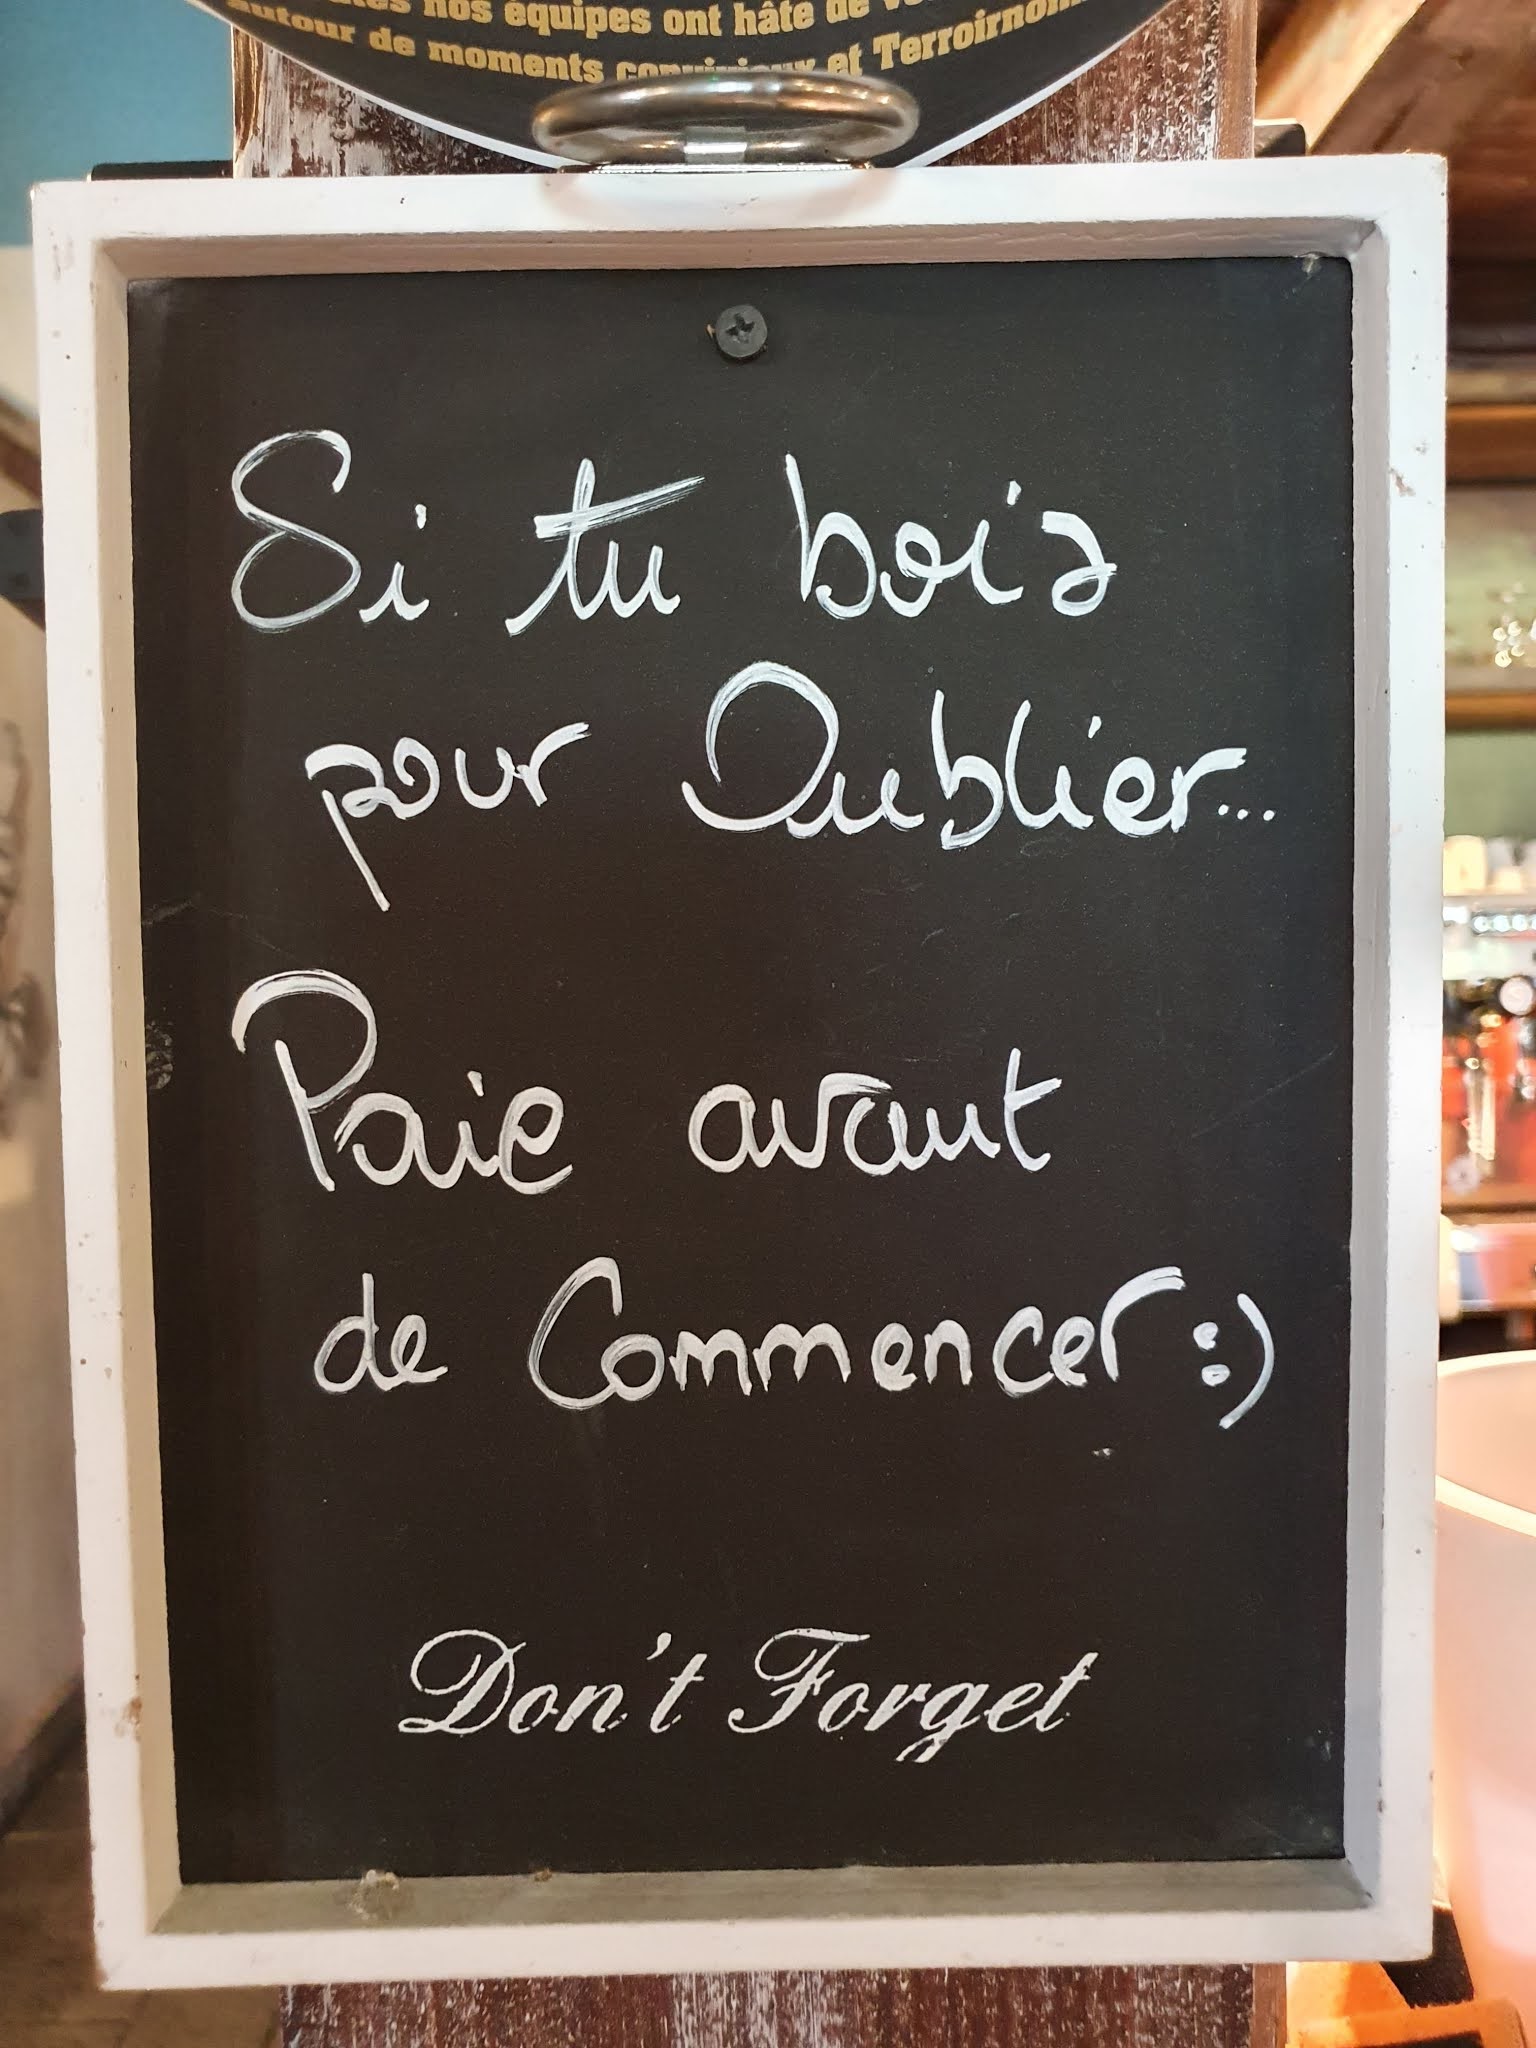 nos équipes ont hâte de
autour de moments conviviaux et
Si tu bois
pour Oublier...
Paie avant
de Commencer :)
Don't Forget